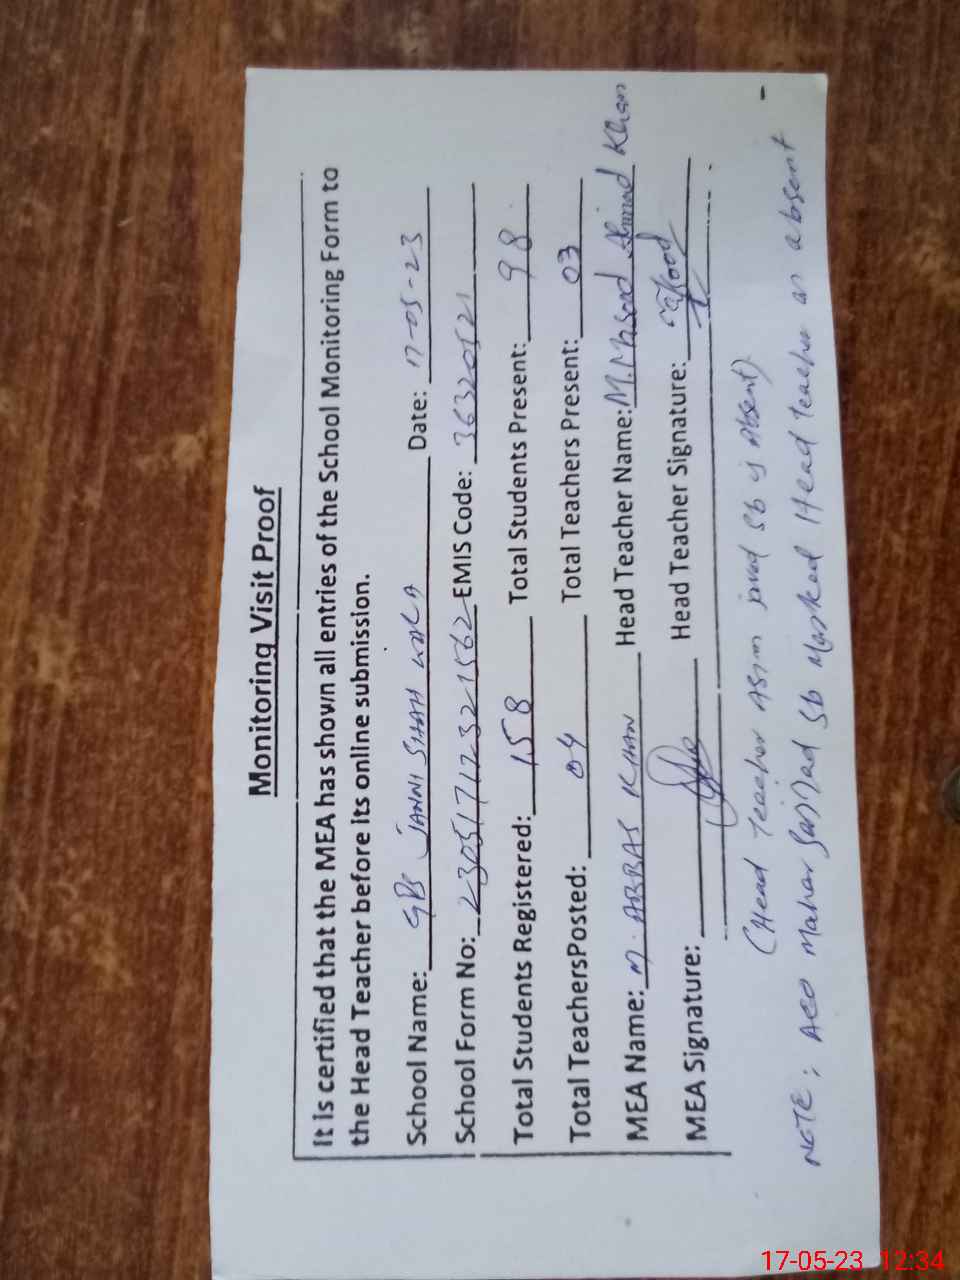 Monitoring Visit Proof
It is certified that the MEA has shown all entries of the School Monitoring Form to
the Head Teacher before its online submission.
School Name: GPS JANNI SHAH WALA Date: 17-05-23
School Form No: 23051712321562 EMIS Code: 36320521
Total Students Registered: 158 Total Students Present: 98
Total TeachersPosted: 04 Total Teachers Present: 03
MEA Name: M. ABBAS KHAN Head Teacher Name: M. Masood Ahmad Khan
MEA Signature: Head Teacher Signature:
(Head Teacher Asim Javed Sb is Absent)
NOTE: AEO Mahar Sajjad Sb Marked Head Teacher as absent
17-05-23 12:34